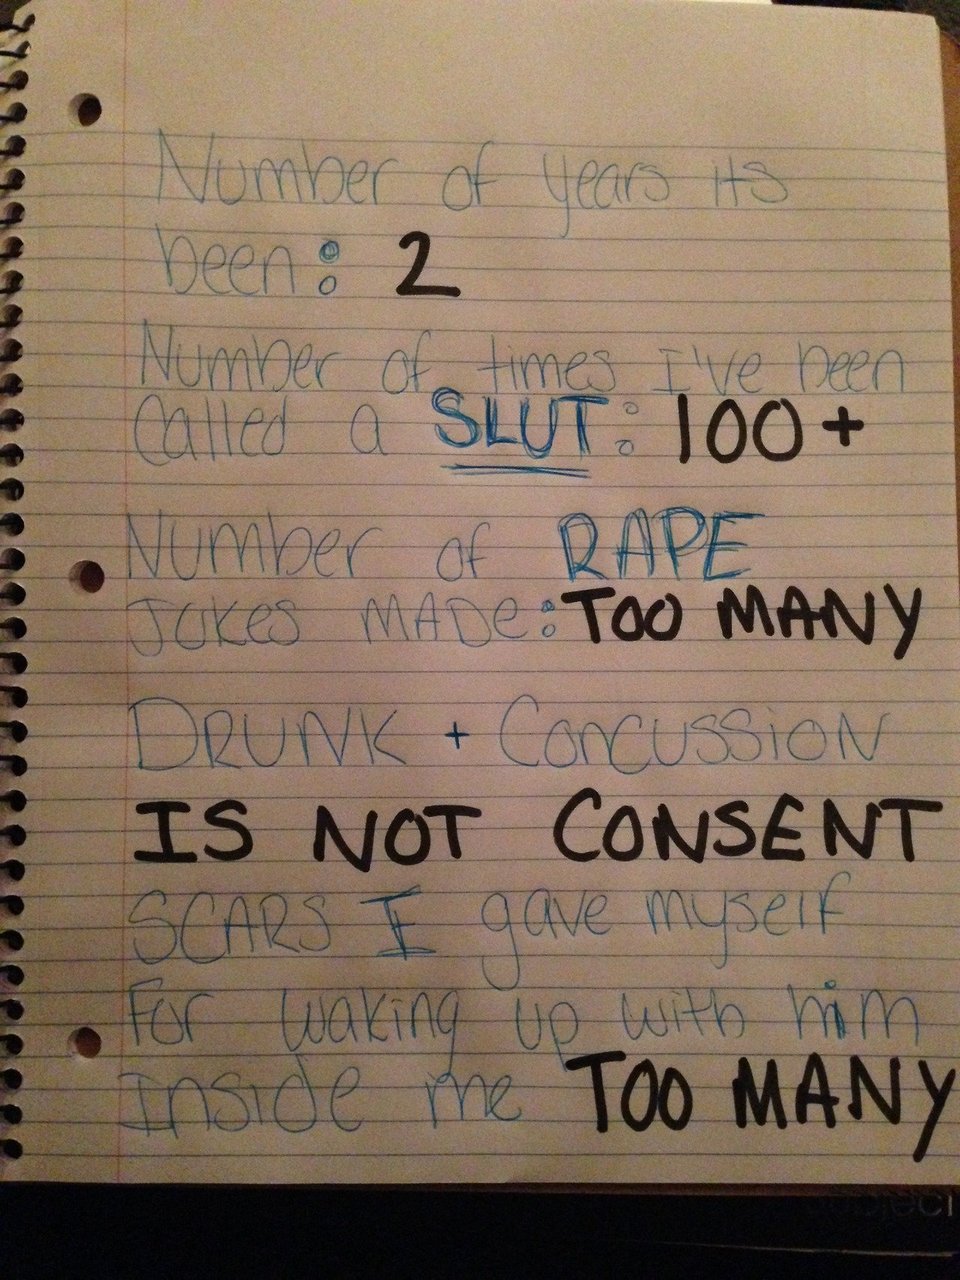 Number of years its
been: 2
Number of times I've been
called a SLUT: 100+
Number of RAPE
JOKES MADE: TOO MANY
DRUNK + CONCUSSION
IS NOT CONSENT
SCARS I gave myself
For waking up with him
Inside me TOO MANY